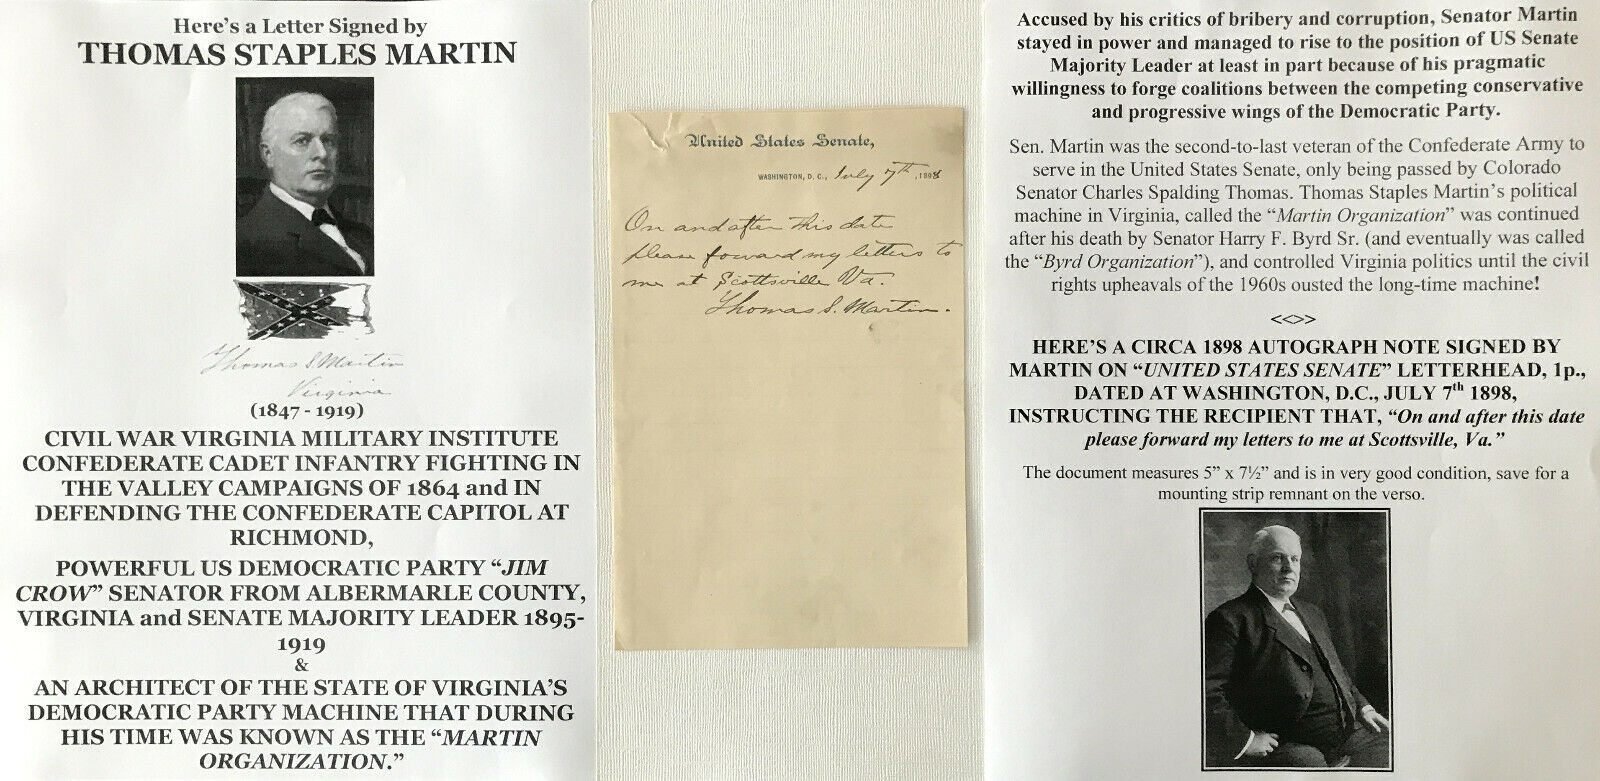 Here's a Letter Signed by
THOMAS STAPLES MARTIN
Thomas S Martin
Virginia
(1847 - 1919)
CIVIL WAR VIRGINIA MILITARY INSTITUTE
CONFEDERATE CADET INFANTRY FIGHTING IN
THE VALLEY CAMPAIGNS OF 1864 and IN
DEFENDING THE CONFEDERATE CAPITOL AT
RICHMOND,
POWERFUL US DEMOCRATIC PARTY “JIM
CROW” SENATOR FROM ALBERMARLE COUNTY,
VIRGINIA and SENATE MAJORITY LEADER 1895-
1919
&
AN ARCHITECT OF THE STATE OF VIRGINIA'S
DEMOCRATIC PARTY MACHINE THAT DURING
HIS TIME WAS KNOWN AS THE “MARTIN
ORGANIZATION.”
United States Senate,
WASHINGTON, D. C., July 7th, 1898
On and after this date
please foward my letters to
me at Scottsville Va.
Thomas S. Martin.
Accused by his critics of bribery and corruption, Senator Martin
stayed in power and managed to rise to the position of US Senate
Majority Leader at least in part because of his pragmatic
willingness to forge coalitions between the competing conservative
and progressive wings of the Democratic Party.
Sen. Martin was the second-to-last veteran of the Confederate Army to
serve in the United States Senate, only being passed by Colorado
Senator Charles Spalding Thomas. Thomas Staples Martin's political
machine in Virginia, called the “Martin Organization” was continued
after his death by Senator Harry F. Byrd Sr. (and eventually was called
the “Byrd Organization”), and controlled Virginia politics until the civil
rights upheavals of the 1960s ousted the long-time machine!
<<>>
HERE'S A CIRCA 1898 AUTOGRAPH NOTE SIGNED BY
MARTIN ON “UNITED STATES SENATE” LETTERHEAD, 1p.,
DATED AT WASHINGTON, D.C., JULY 7th 1898,
INSTRUCTING THE RECIPIENT THAT, “On and after this date
please forward my letters to me at Scottsville, Va.”
The document measures 5” x 7½” and is in very good condition, save for a
mounting strip remnant on the verso.